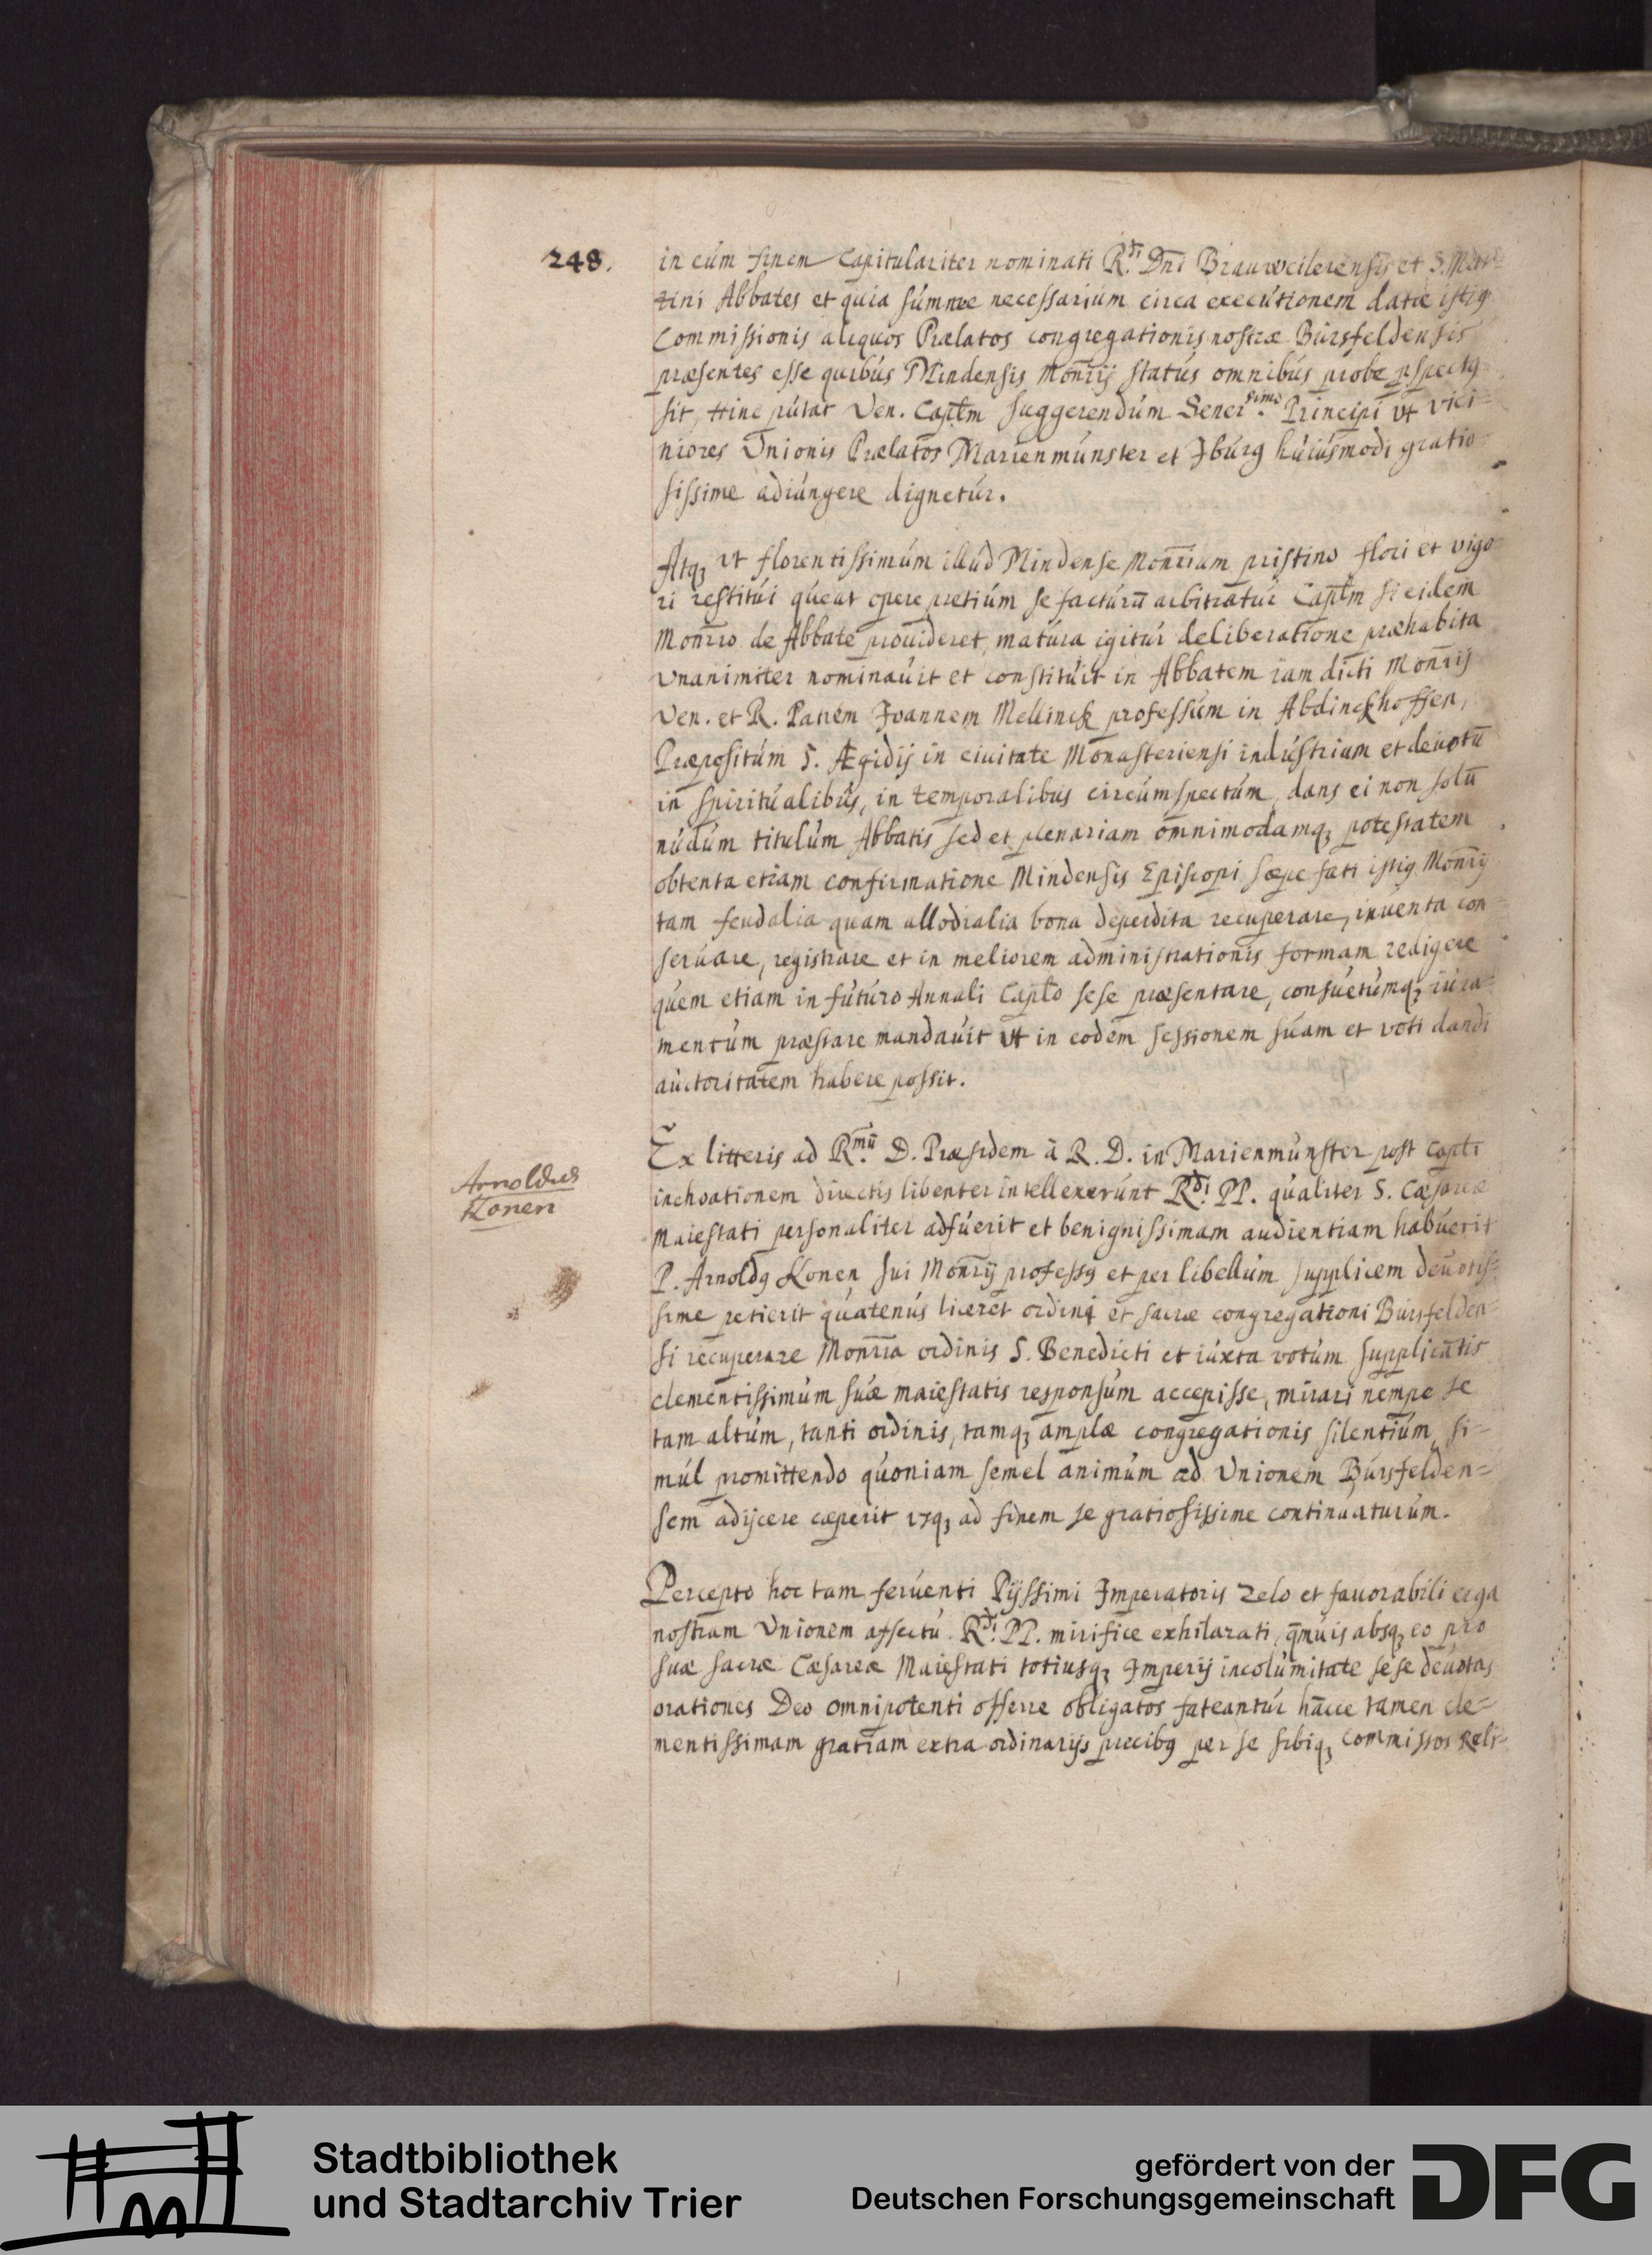 248.
in eum finem Capitulariter nominati R.di Dni Brauweilerensis et S. Mar-
tini Abbates et quia summe necessarium circa executionem datæ istig
Commissionis aliquos Prælatos congregationis nostræ Bursfeldensis
præsentes esse quibus Mindensis Monrij status omnibus probe pspectg
sit, hinc putat Ven. Capłm suggerendum Seneriss.mo Principi vt vici-
niores Vnionis Prælatos Marienmunster et Iburg huiusmodi gratio-
sissime adiungere dignetur.
Atq3 vt florentissimum illud Mindense Monrium pristino flori et vigo-
ri restitui queat operæ pretium se facturū arbitratur Capłm si eidem
Monrio de Abbate prouideret, matura igitur deliberatione præhabita
vnanimiter nominauit et constituit in Abbatem iam dicti Monrij
Ven. et R. Patrem Joannem Mellinck professum in Abdinckhoffen,
Præpositum S. Ægidij in ciuitate Monasteriensi industrium et deuotū
in spiritualibus, in temporalibus circumspectum, dans ei non solū
nudum titulum Abbatis sed et plenariam omnimodamq3 potestatem
obtenta etiam confirmatione Mindensis Episcopi sæpe fati istig Monrij
tam feudalia quam allodialia bona deperdita recuperare, inuenta con
seruare, registrare et in meliorem administrationis formam redigere
quem etiam in futuro Annali Capło sese præsentare, consuetumq3 iura-
mentum præstare mandauit vt in eodem sessionem suam et voti dandi
auctoritatem habere possit.
Ex litteris ad R.mū D. Præsidem à R. D. in Marienmunster post Capłi
inchoationem directis libenter intellexerunt R.di PP. qualiter S. Cæsareæ
Maiestati personaliter adfuerit et benignissimam audientiam habuerit
P. Arnoldg Konen sui Monrij professg et per libellum supplicem deuotis-
sime petierit quatenus liceret ordini et sacræ congregationi Bursfelden-
si recuperare Monria ordinis S. Benedicti et iuxta votum supplicātis
clementissimum suæ maiestatis responsum accepisse, mirari nempe se
tam altum, tanti ordinis, tamq3 amplæ congregationis silentium, si-
mul promittendo quoniam semel animum ad Vnionem Bursfelden-
sem adijcere cæperit vsq3 ad finem se gratiosissime continuaturum.
Arnoldus
Konen
Percepto hoc tam feruenti Pijssimi Imperatoris zelo et fauorabili erga
nostram Vnionem affectu R.di PP. mirifice exhilarati, qmuis absq3 eo pro
suæ sacræ Cæsareæ Maiestati totiusq3 Imperij incolumitate sese deuotas
orationes Deo omnipotenti offerre obligatos fateantur hāce tamen cle-
mentissimam gratiam extra ordinarijs precibg per se sibiq3 commissos Reli-
Stadtbibliothek
und Stadtarchiv Trier
gefördert von der
Deutschen Forschungsgemeinschaft
DFG